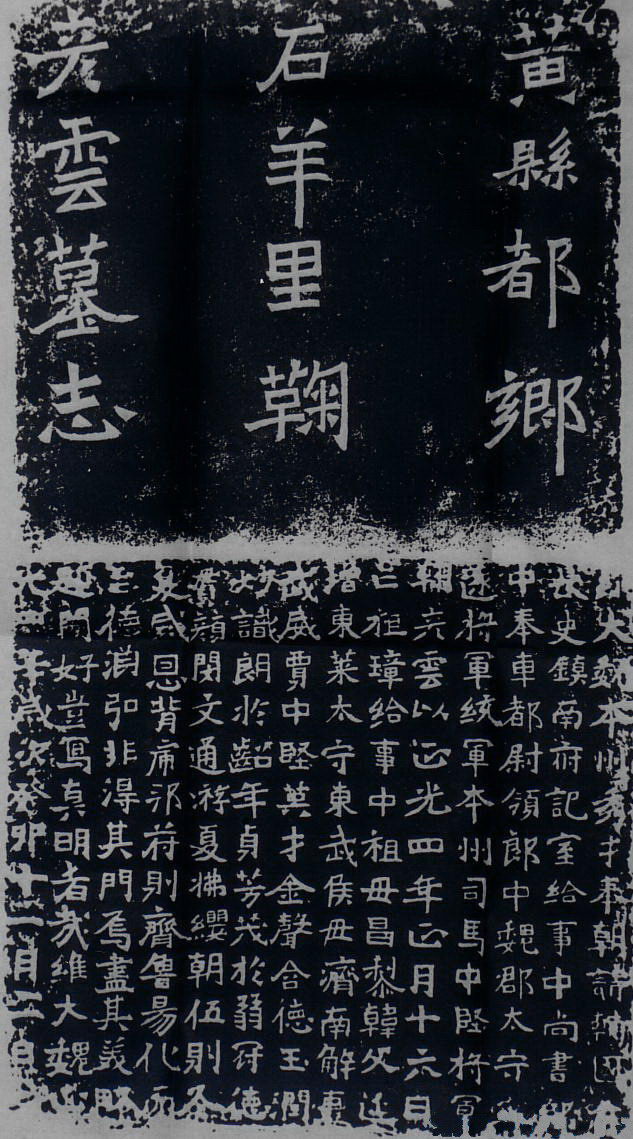 黃縣都鄉
石羊里鞠
彦雲墓志
大魏本州秀才奉朝請輔國
長史鎮南府記室給事中尚書郎
中奉車都尉領郎中魏郡太守
遠將軍統軍本州司馬中堅將軍
彦雲以正光四年正月十六日
亡祖璋給事中祖母昌黎韓父延
增東萊太守東武侯母濟南解妻
武威賈中堅英才金聲含德玉潤
妙識朗於齠年貞芳茂於弱冠德
實顏閔文通游夏拂纓朝伍則令
盛恩背帝邦符則齊魯易化
至德淵弘非得其門焉盡其義略
述聞好豈寫真明者哉維大魏正
光四年歲次癸卯十一月二日